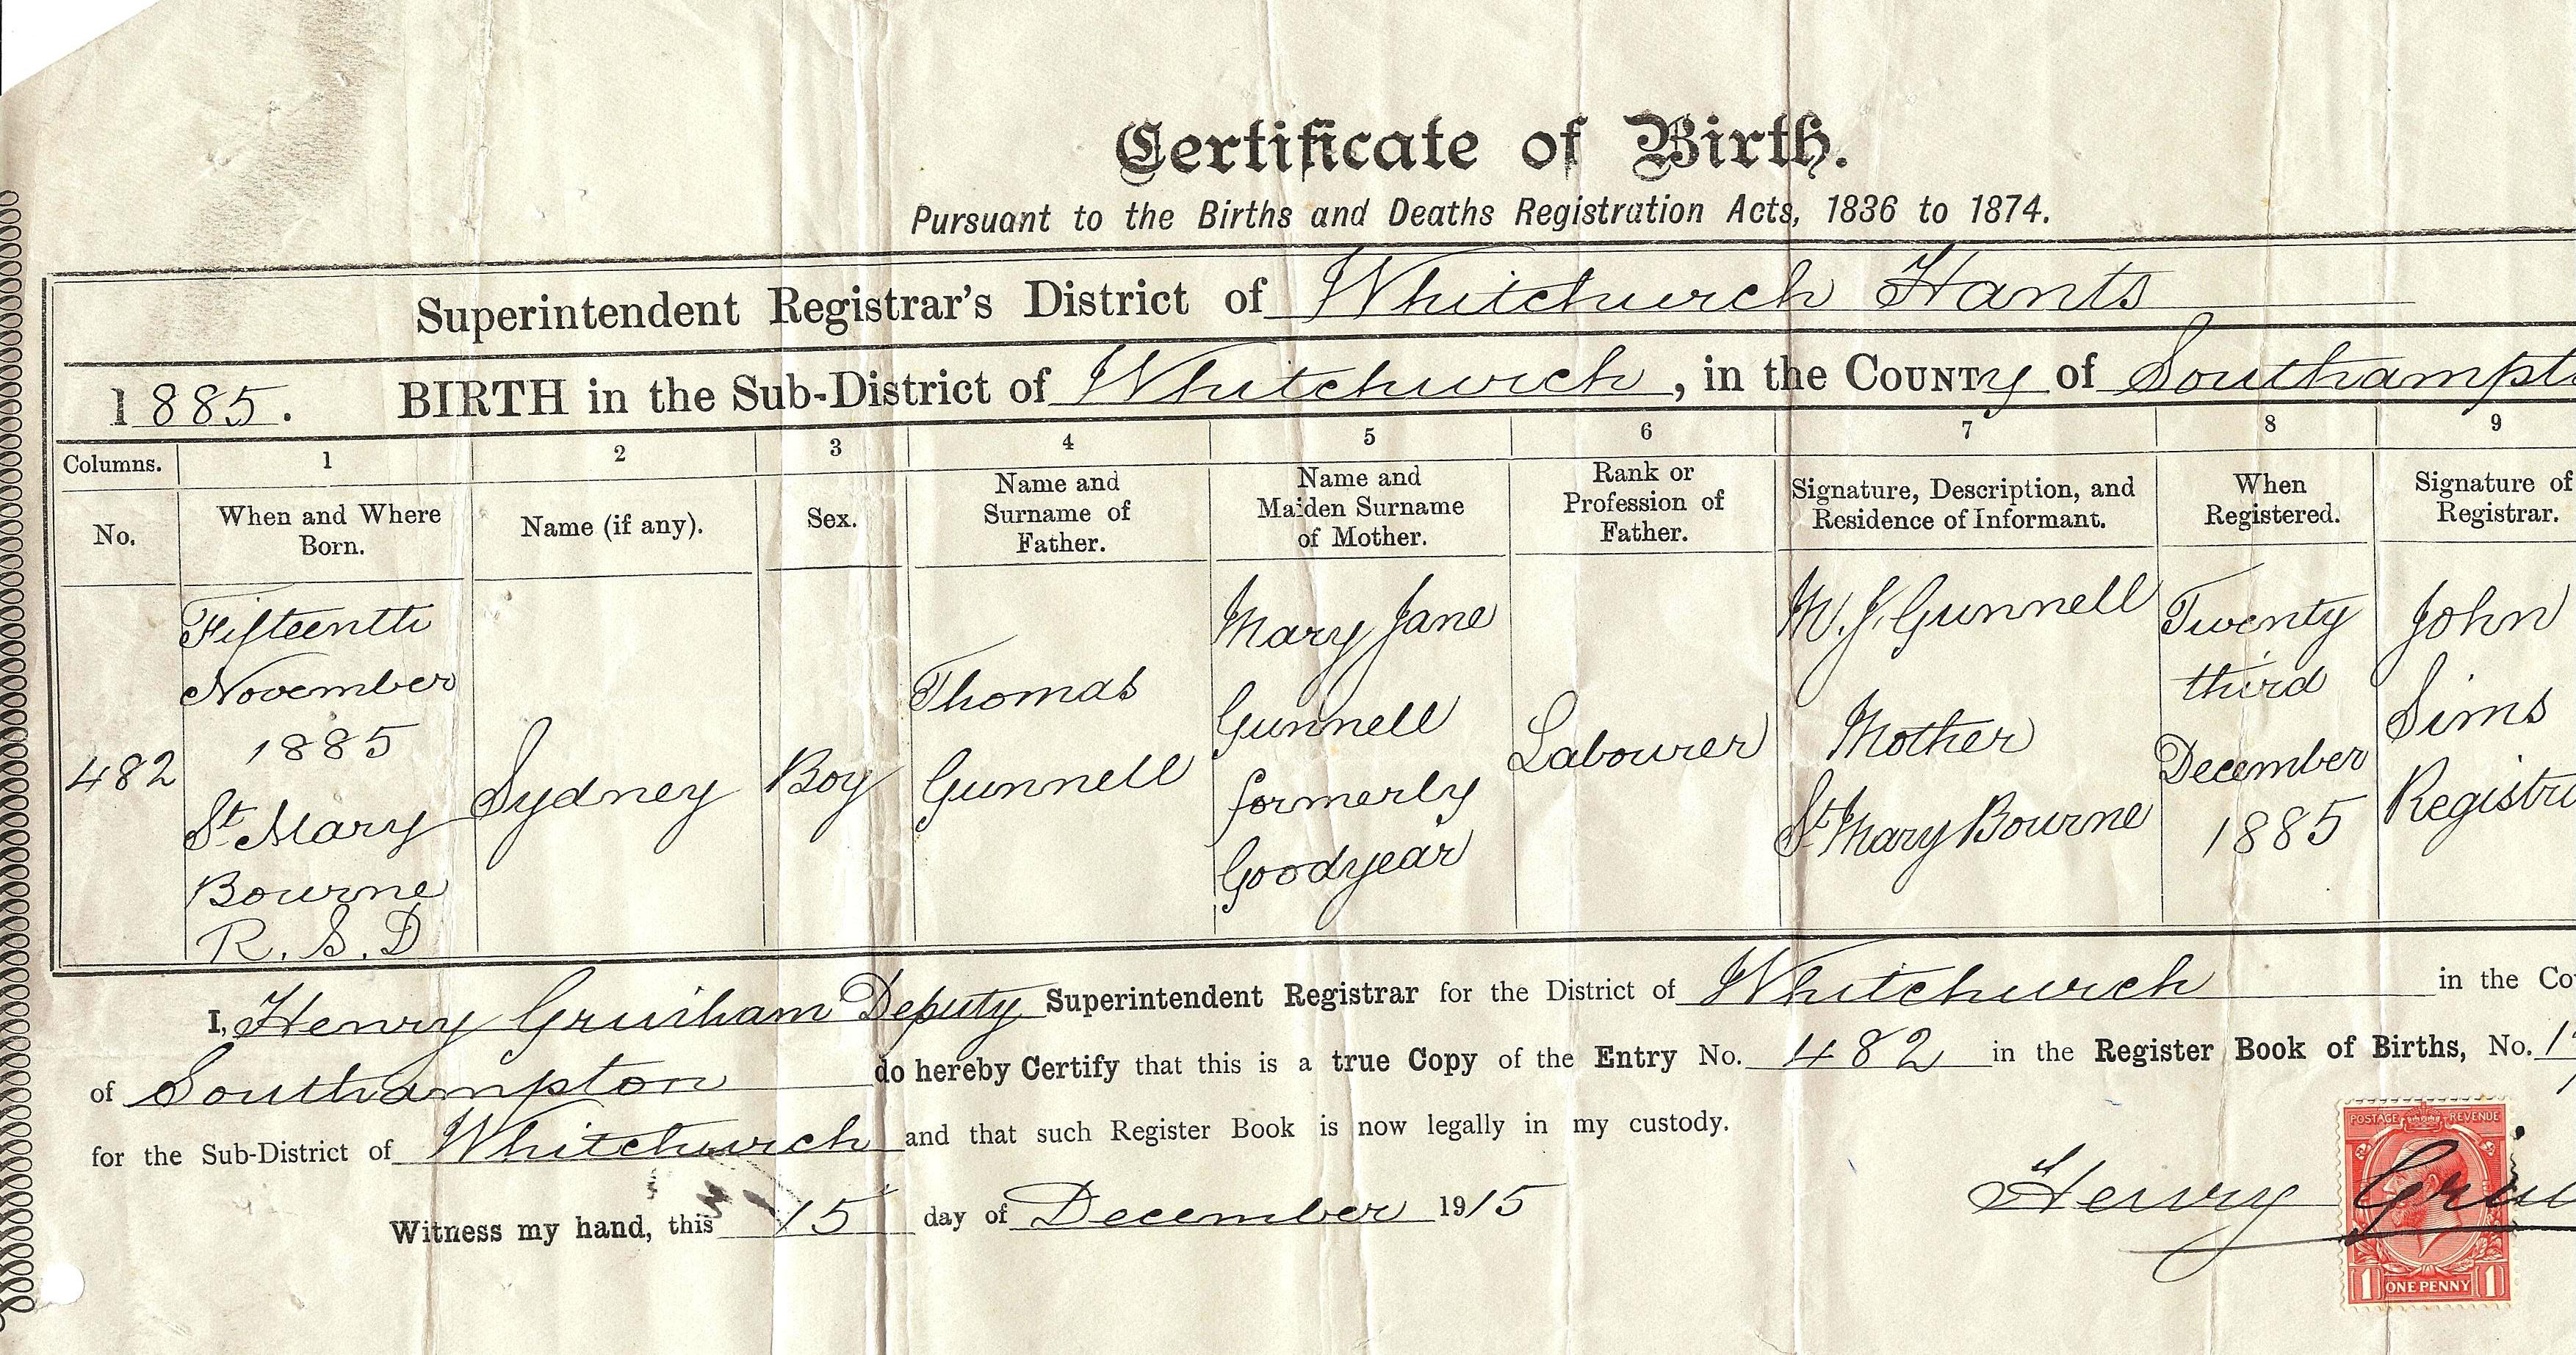 Certificate of Birth.
Pursuant to the Births and Deaths Registration Acts, 1836 to 1874.
Superintendent Registrar's District of Whitchurch Hants
1885. BIRTH in the Sub-District of Whitchurch, in the COUNTy of Southampt
Columns. 1 2 3 4 5 6 7 8 9
No. When and Where Born. Name (if any). Sex. Name and Surname of Father. Name and Maiden Surname of Mother. Rank or Profession of Father. Signature, Description, and Residence of Informant. When Registered. Signature of Registrar.
482
Fifteenth
November
1885
St. Mary
Bourne
R. S. D
Sydney
Boy
Thomas
Gunnell
Mary Jane
Gunnell
formerly
Goodyear
Labourer
M. J. Gunnell
Mother
St. Mary Bourne
Twenty
third
December
1885
John
Sims
Registr
I, Henry Deputy Superintendent Registrar for the District of Whitchurch in the Co
of Southampton do hereby Certify that this is a true Copy of the Entry No. 482 in the Register Book of Births, No.
for the Sub-District of Whitchurch and that such Register Book is now legally in my custody.
Witness my hand, this 15 day of December 1915
Henry
POSTAGE REVENUE
1 ONE PENNY 1